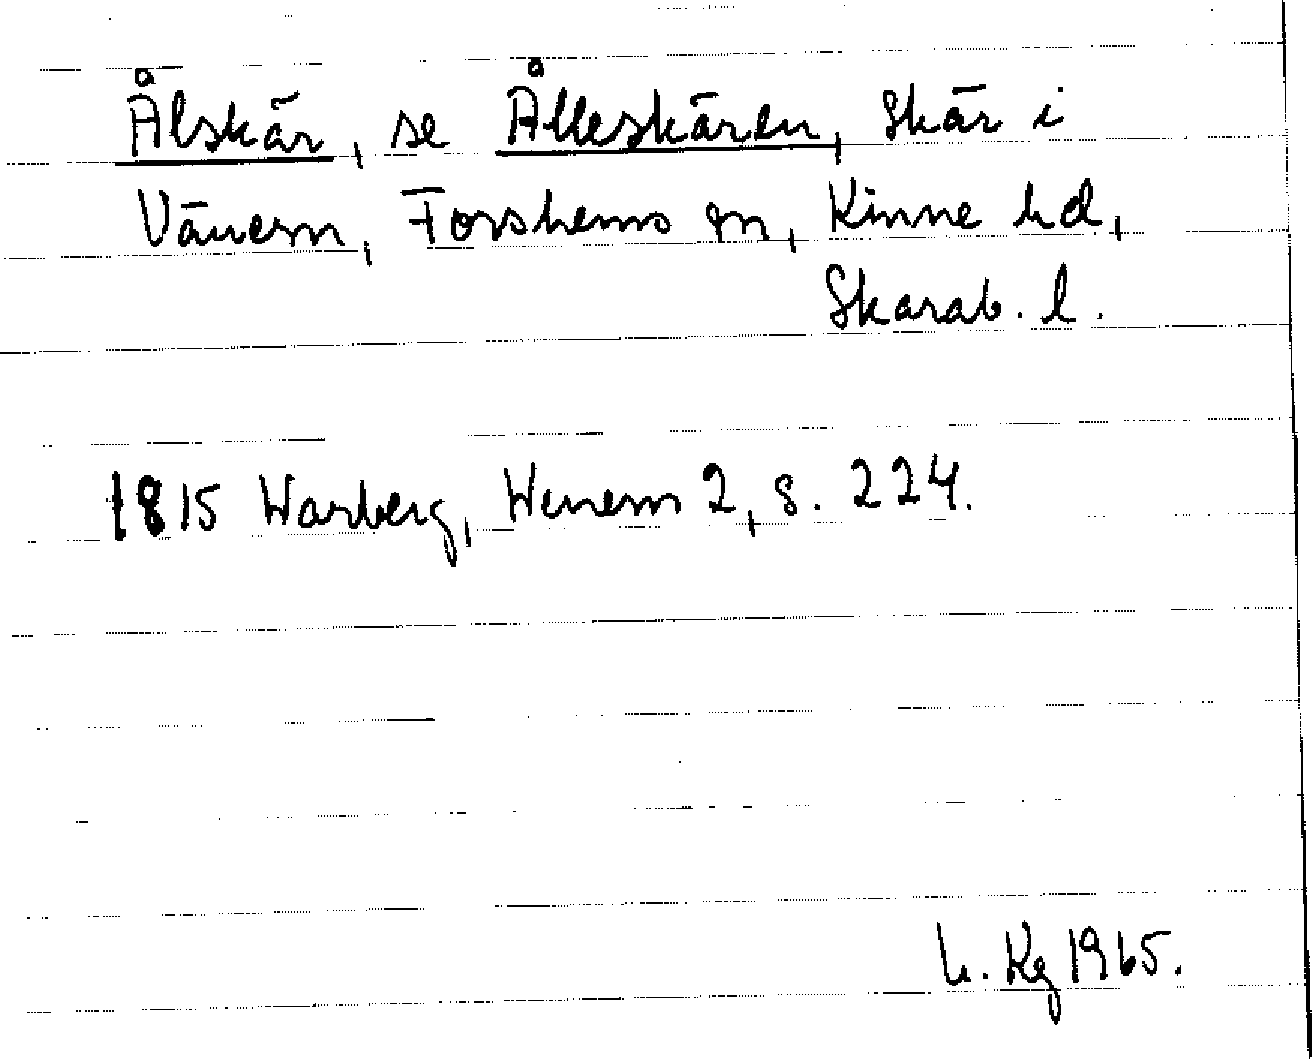 Ålskär, se Ålleskären, skär i
Vänern, Forshems sn, Kinne hd,
Skarab. l.
1815 Warberg, Wenern 2, s. 224.
L. Kg 1965.